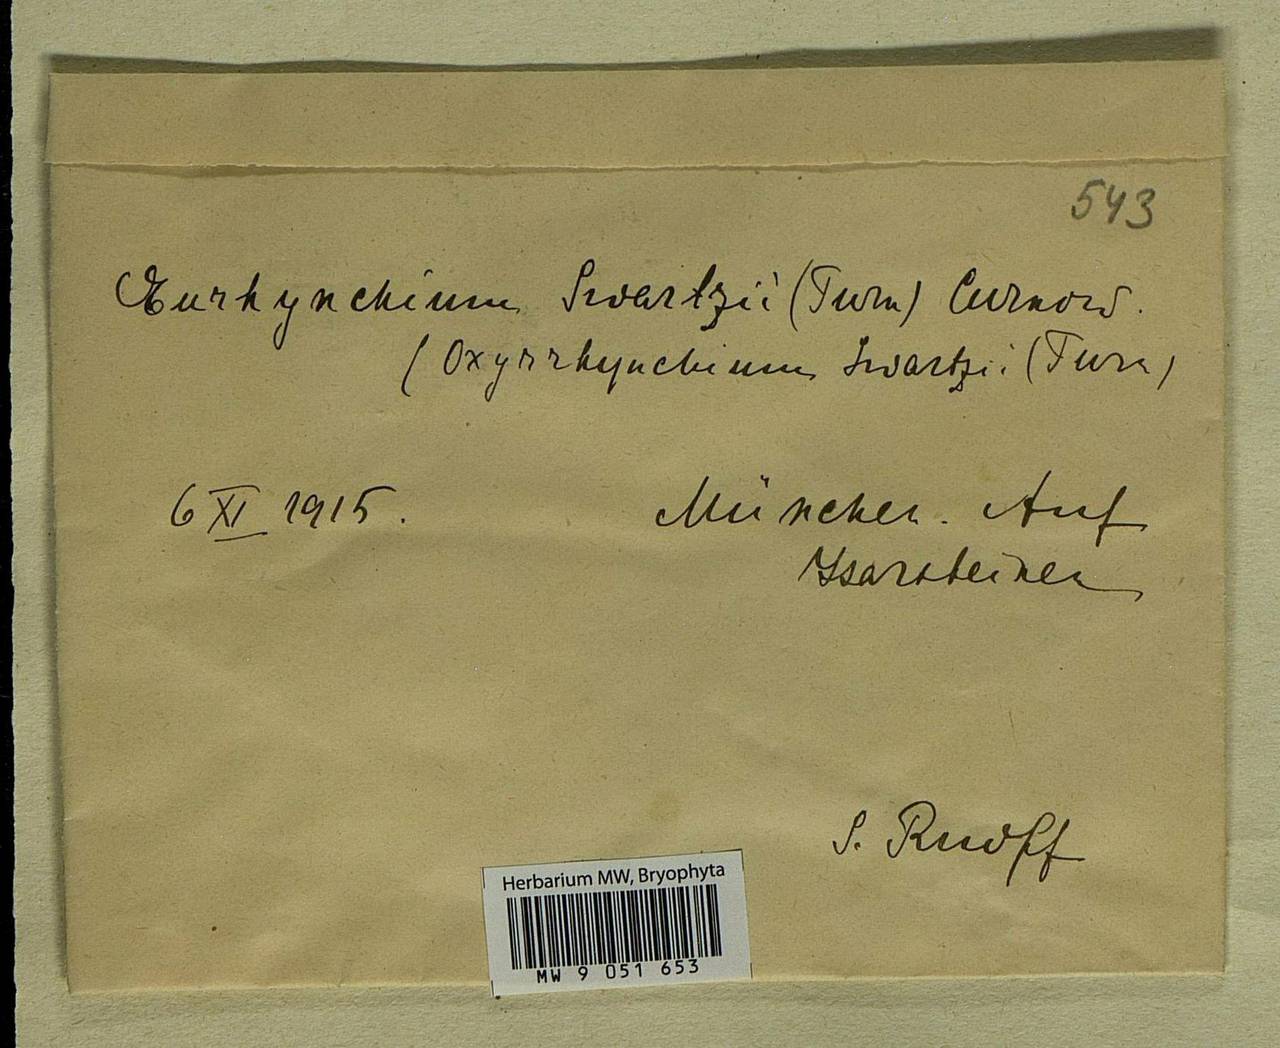 543
Eurhynchium Swartzii (Turn) Curnow.
(Oxyrrhynchium Swartzii (Turn)
6 XI 1915.
München. Auf
Isarsteinen
S. Ruoff
Herbarium MW, Bryophyta
MW 9 051 653